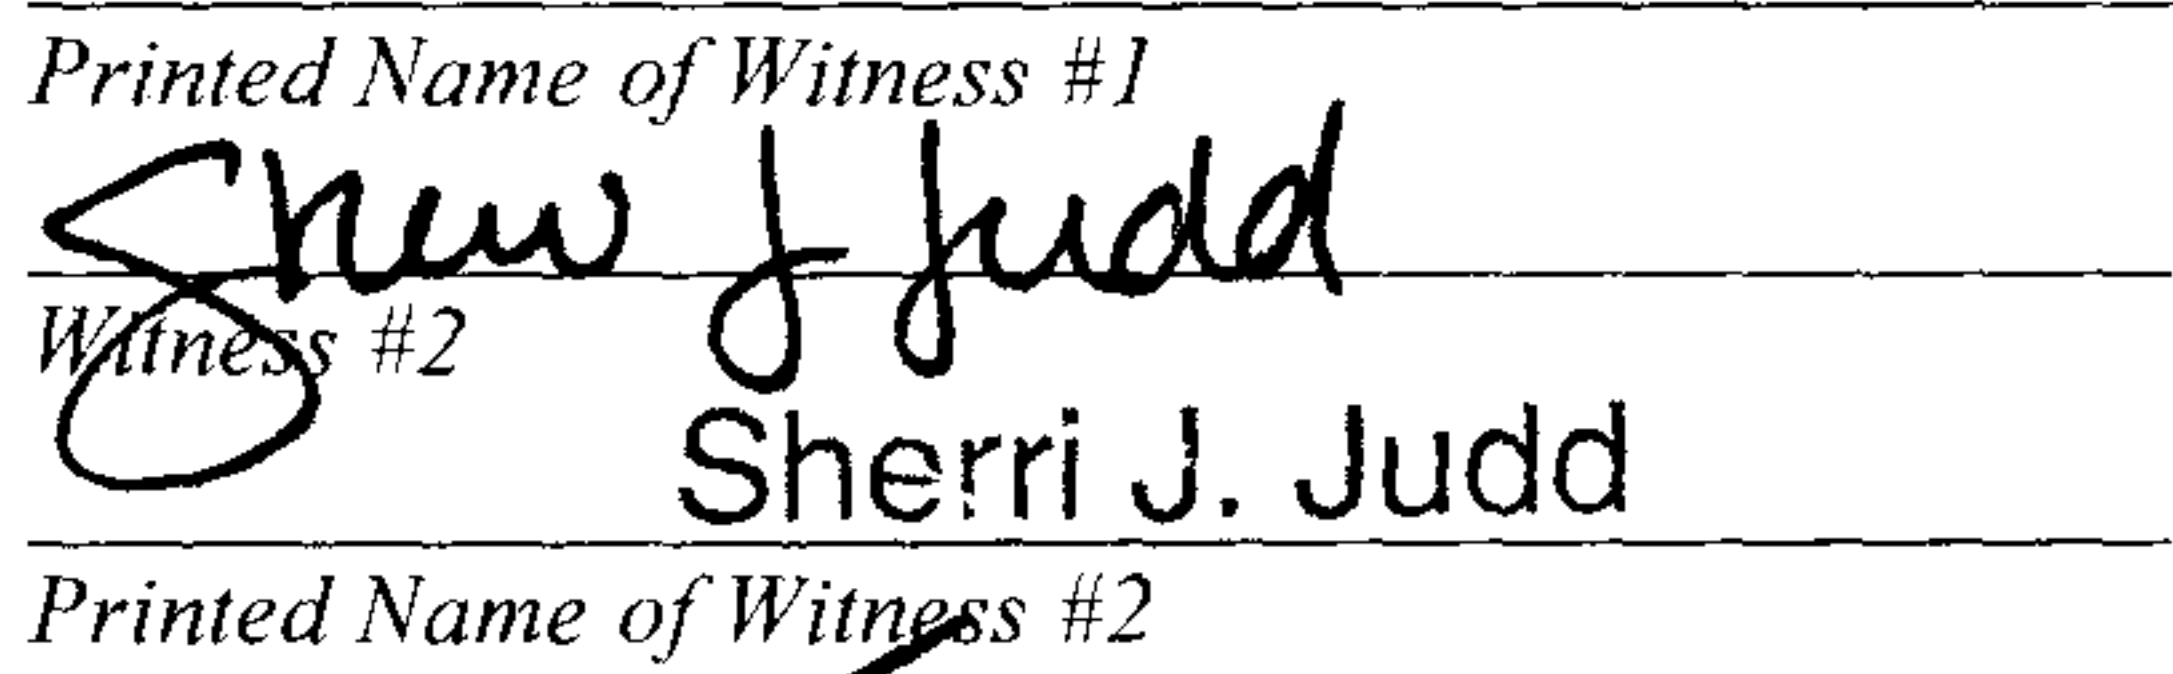 Printed Name of Witness #1
Sherri J Judd
Witness #2
Sherri J. Judd
Printed Name of Witness #2